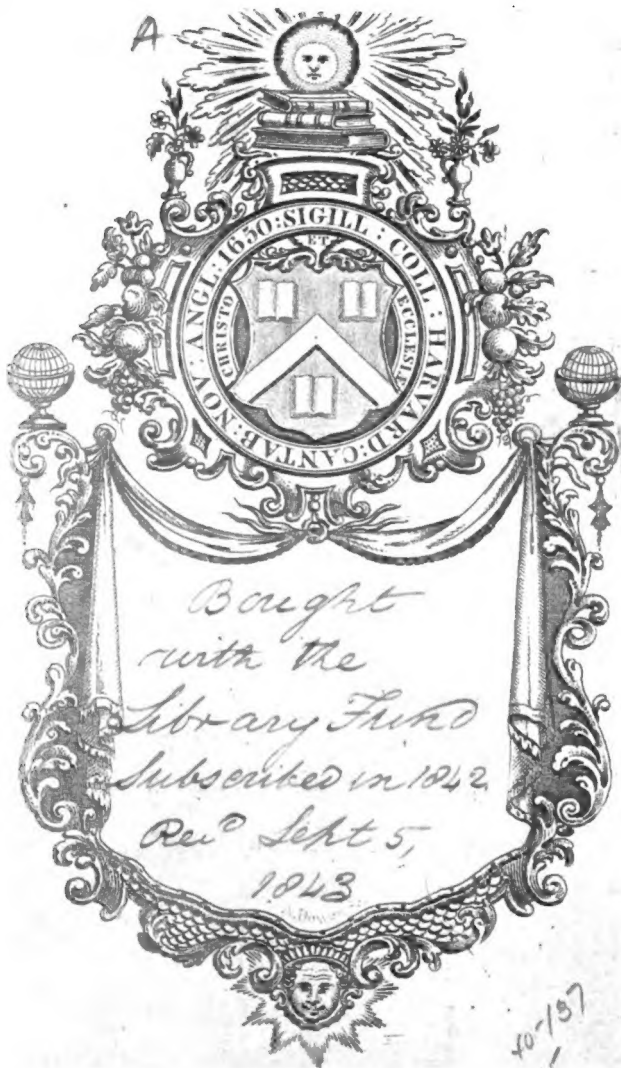 A
SIGILL : COLL : HARVARD : CANTAB : NOV : ANGL : 1650 :
ET
CHRISTO
ECCLESIÆ
Bought
with the
Library Fund
Subscribed in 1842
Rec^d Sept 5,
1843
40-137